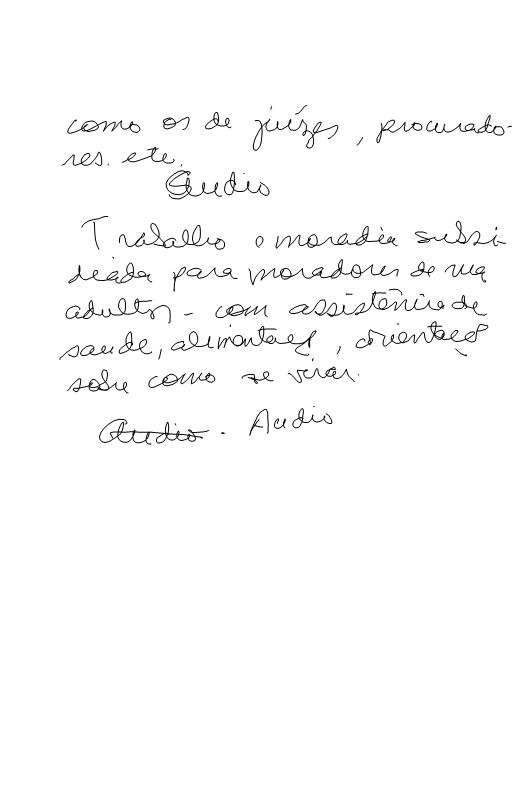 como os de juízes, procurado-
res. etc.
Audio
Trabalho e moradia subsi-
diada para moradores de rua
adultos - com assistência de
saude, alimentação, orientação
sobre como se virar.
Audio. Audio